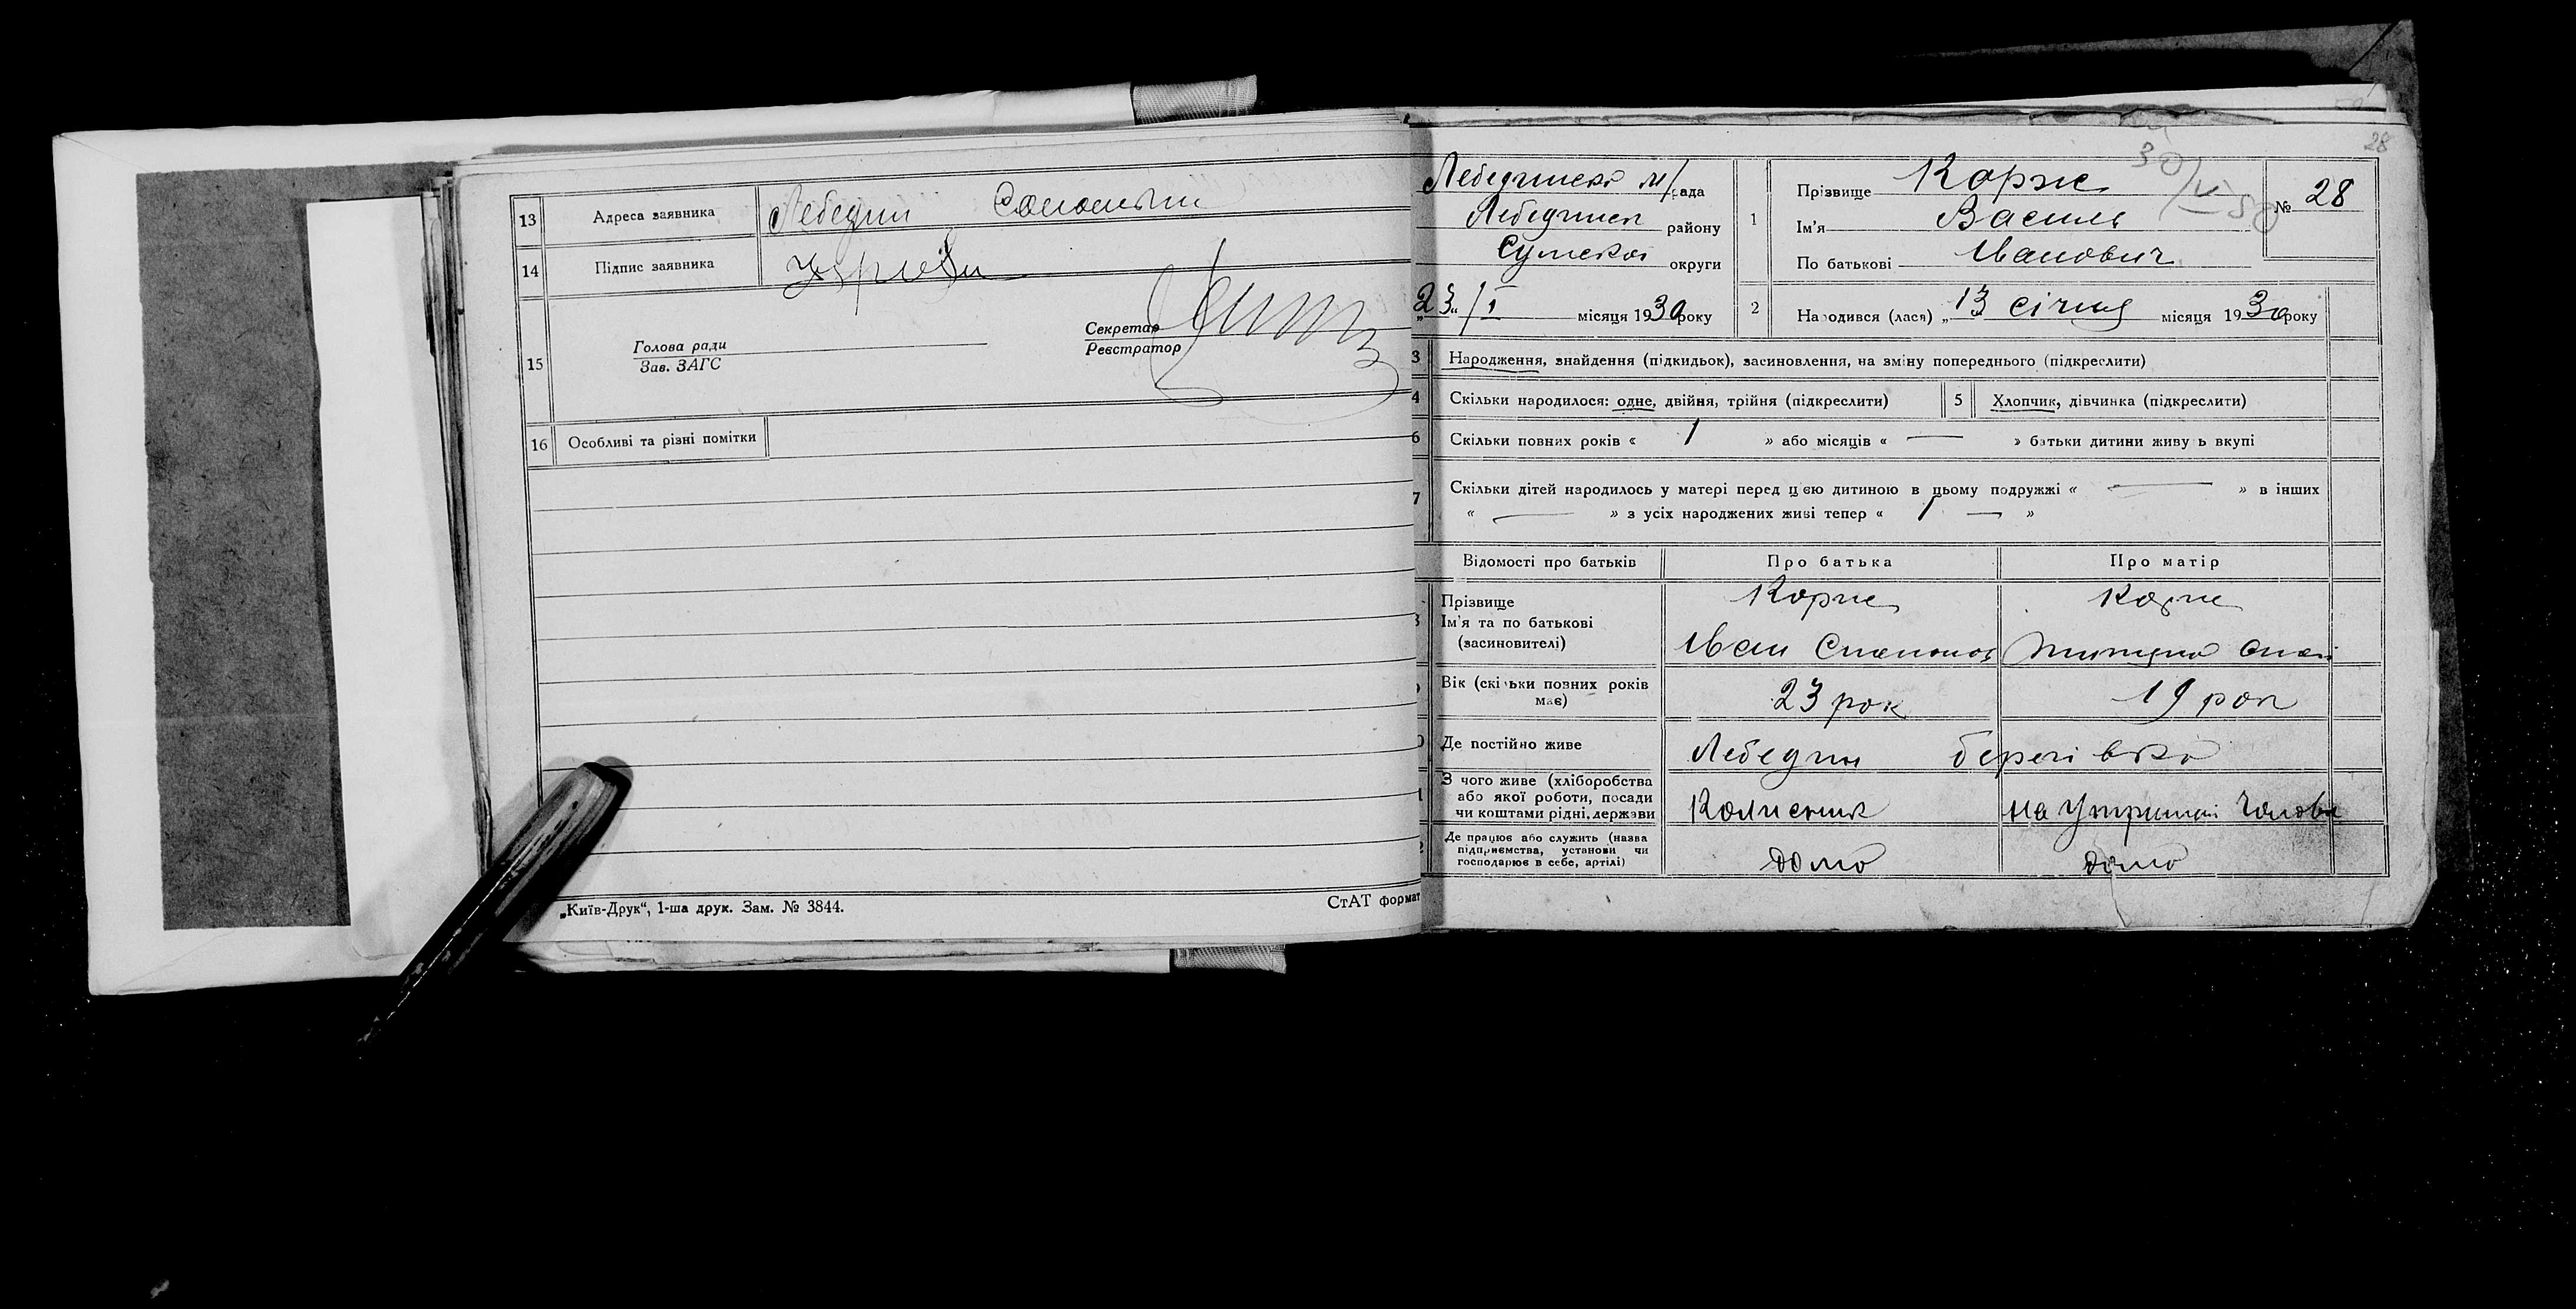 13 Адреса заявника Лебедин
14 Підпис заявника
15 Голова ради
Зав. ЗАГС
Секретар
Реєстратор
16 Особливі та різні помітки
„Київ-Друк“, 1-ша друк. Зам. № 3844.
СтАТ формат
28
Лебединсько м/рада
Лебединськ району
Сумської округи
„23“/I місяця 1930 року
30/V 50
1 Прізвище Корж
Ім'я Василь
По батькові Іванович
№ 28
2 Народився (лася) „13 січня місяця 1930 року
3 Народження, знайдення (підкидьок), засиновлення, на зміну попереднього (підкреслити)
4 Скільки народилося: одне, двійня, трійня (підкреслити)
5 Хлопчик, дівчинка (підкреслити)
6 Скільки повних років « 1 » або місяців « — » батьки дитини живуть вкупі
7 Скільки дітей народилось у матері перед цією дитиною в цьому подружжі « — » в інших
« — » з усіх народжених живі тепер « 1 — »
Відомості про батьків Про батька Про матір
Прізвище Корж Корж
Ім'я та по батькові
(засновителі) Іван
Вік (скільки повних років
має) 23 рок 19 рок
Де постійно живе Лебедин
З чого живе (хліборобства
або якої роботи, посади
чи коштами рідні, держави Колисник на утриман чолові
Де працює або служить (назва
підприємства, установи чи
господарює в себе, артілі) дома дома